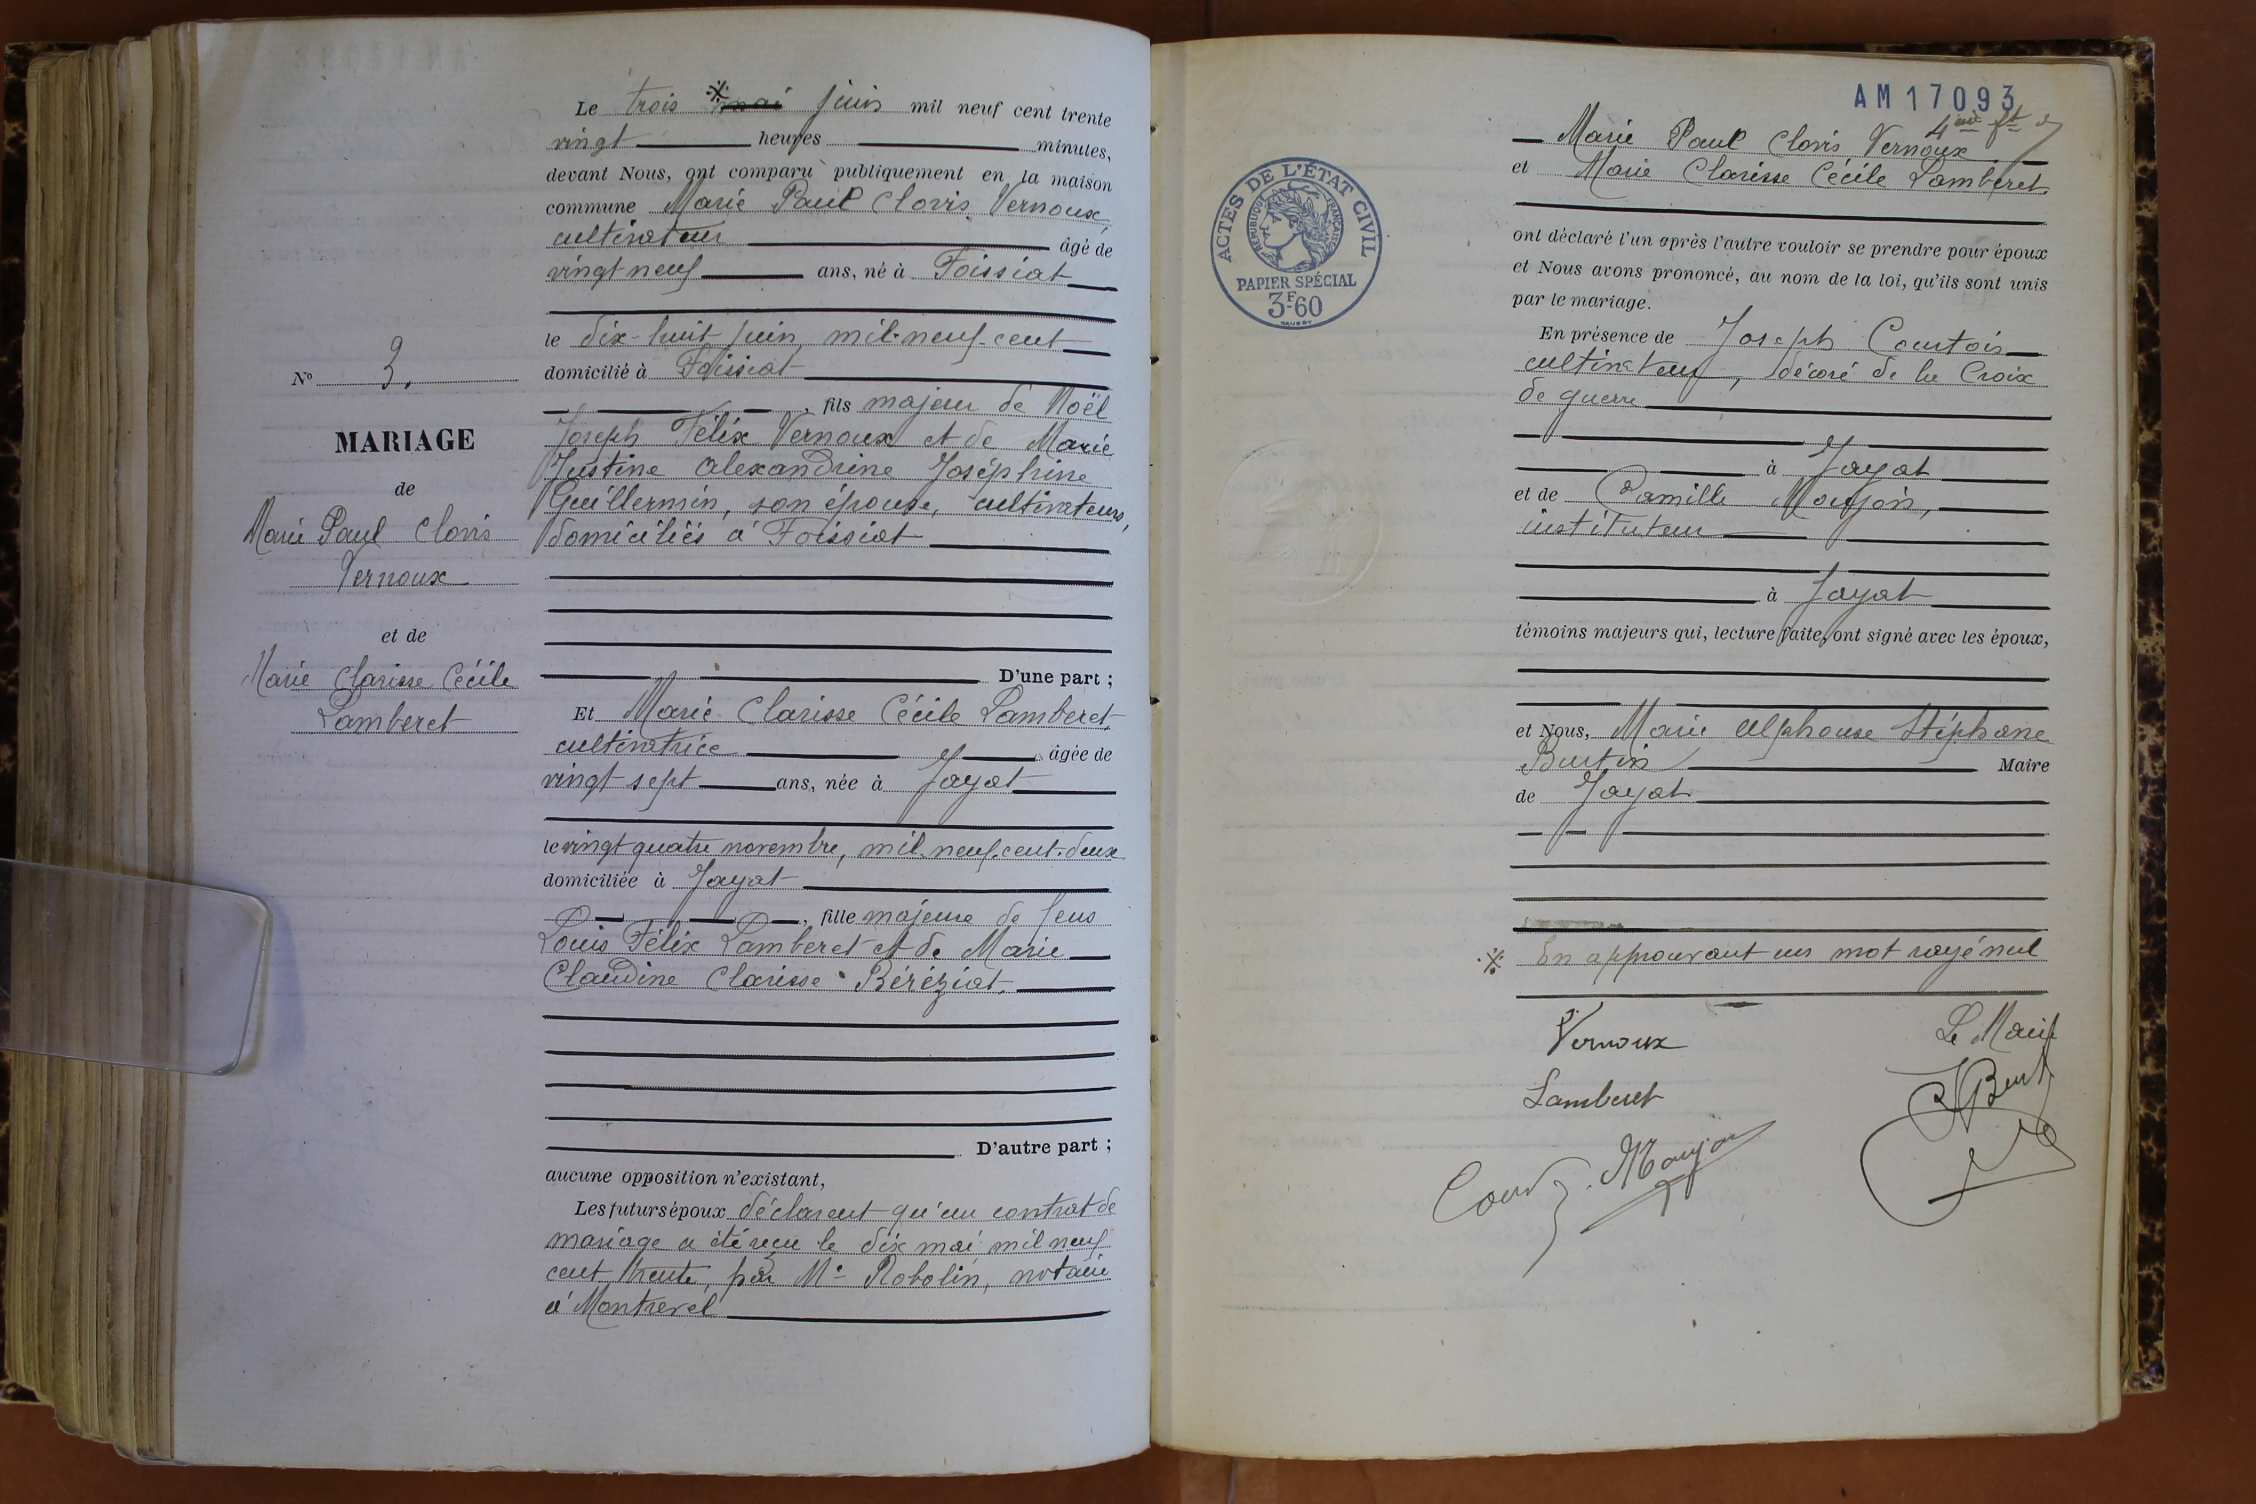 N° 3.
MARIAGE
de
Marie Paul Clovis
Vernoux
et de
Marie Clarisse Cécile
Lamberet
Le trois ※ mai juin mil neuf cent trente
vingt heures minutes,
devant Nous, ont comparu publiquement en la maison
commune Marie Paul Clovis Vernoux,
cultivateur âgé de
vingt neuf ans, né à Foissiat
le dix-huit juin mil-neuf-cent
domicilié à Foissiat
, fils majeur de Noël
Joseph Félix Vernoux et de Marie
Justine Alexandrine Joséphine
Guillermin, son épouse, cultivateurs,
domiciliés à Foissiat
D'une part ;
Et Marie Clarisse Cécile Lamberet,
cultivatrice âgée de
vingt sept ans, née à Jayat
le vingt quatre novembre, mil neuf-cent-deux
domiciliée à Jayat
, fille majeure de feus
Louis Félix Lamberet et de Marie
Claudine Clarisse Béréziat.
D'autre part ;
aucune opposition n'existant,
Les futurs époux déclarent qu'un contrat de
mariage a été reçu le dix mai mil neuf
cent trente, par Me Robolin, notaire
à Montrevel
AM17093
4me ft
Marie Paul Clovis Vernoux
et Marie Clarisse Cécile Lamberet,
ACTES DE L'ÉTAT CIVIL
RÉPUBLIQUE FRANÇAISE
PAPIER SPÉCIAL
3F60
ont déclaré l'un après l'autre vouloir se prendre pour époux
et Nous avons prononcé, au nom de la loi, qu'ils sont unis
par le mariage.
En présence de Joseph Courtois
cultivateur, décoré de la Croix
de guerre
à Jayat
et de Camille Moujon,
instituteur
à Jayat
témoins majeurs qui, lecture faite, ont signé avec les époux,
et Nous, Marie Alphonse Stéphane
Burtin Maire
de Jayat
※ En approuvant un mot rayé nul
Vernoux
Le Maire
Lamberet
S Burtin
Moujon